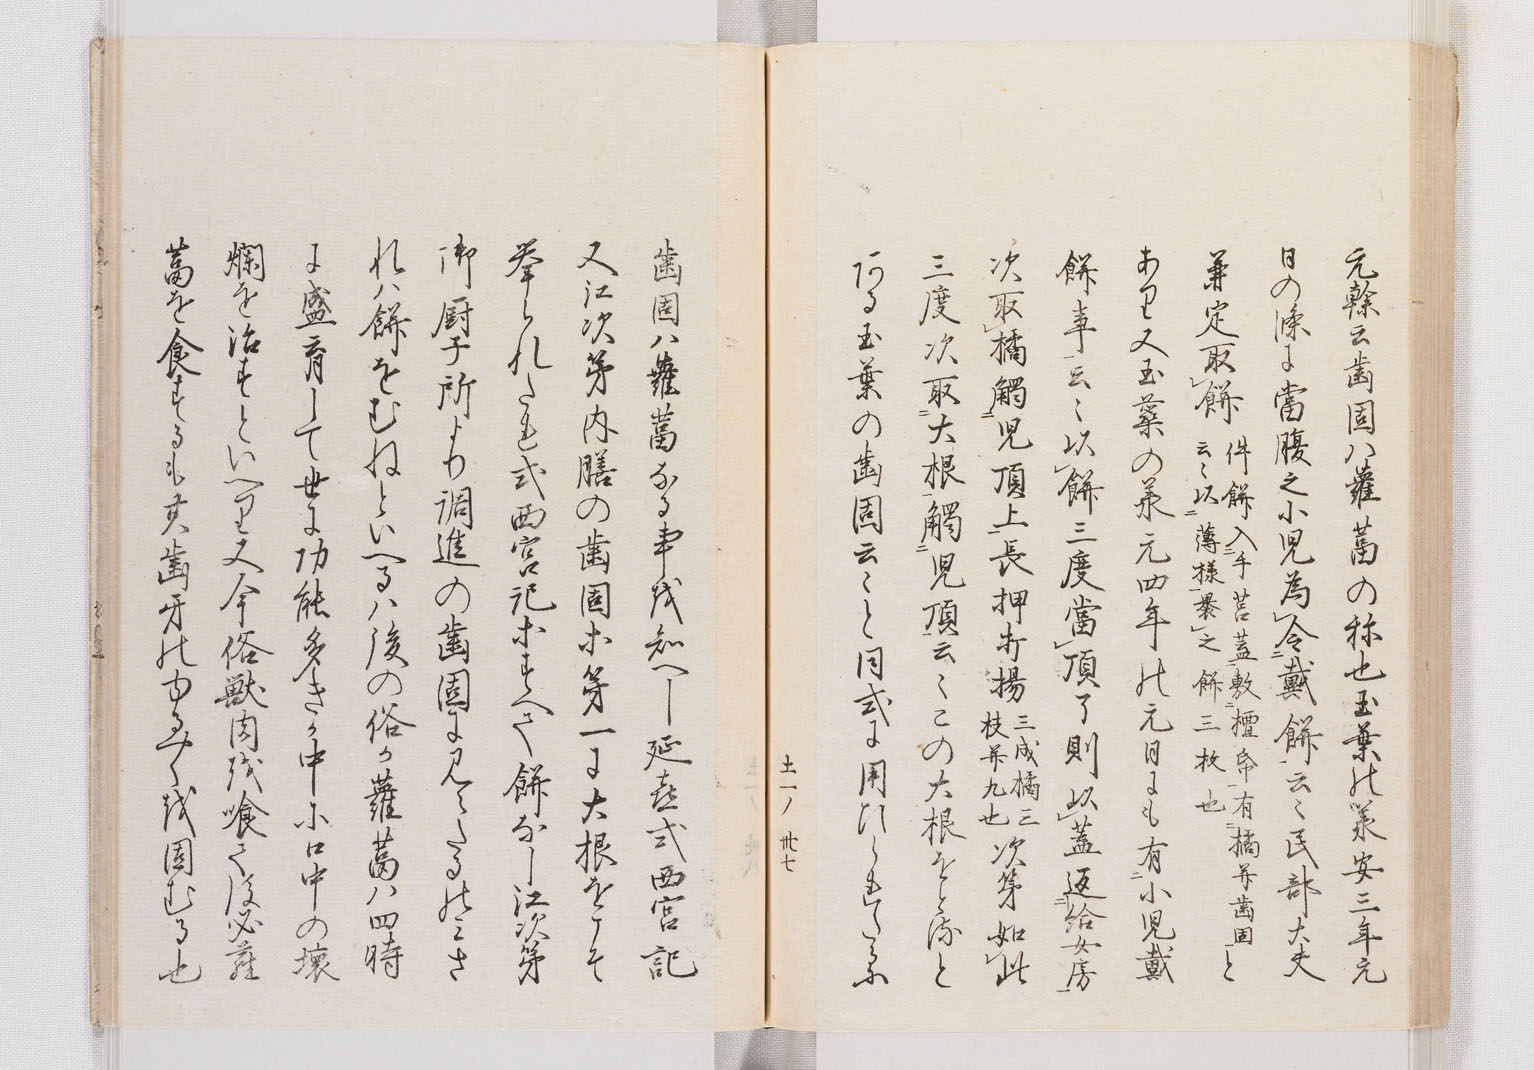 元幹云歯固ハ蘿蔔の称也玉葉の承安三年元
日の條に當腹之小児為令戴餅云々民部大夫
兼定取餅件餅入手筥蓋敷檀帋有橘并歯固云々以薄様褁之餅三枚也と
あり又玉蘂の承元四年の元日にも有小児戴
餅事云々以餅三度當頂了則以蓋返給女房
次取橘觸児頂上長押打揚三成橘三枝并九也次第如此
三度次取大根觸児頂云々この大根をと流と
ある玉葉の歯固云々と同式に用ひられたるに
歯固ハ蘿蔔なる事を知へし延喜式西宮記
又江次第内膳の歯固ホ第一に大根をこそ
挙られたれ式西宮記ホすへて餅なし江次第
御厨子所より調進の歯固に見えたるのミさ
れハ餅をむねといへるハ後の俗か蘿蔔ハ四時
に盛育して世に功能多きか中尓口中の壊
爛を治すといへり又今俗獣肉を喰て後必蘿
蔔を食するも其歯牙のゆるみを固むる也
土一ノ卅七